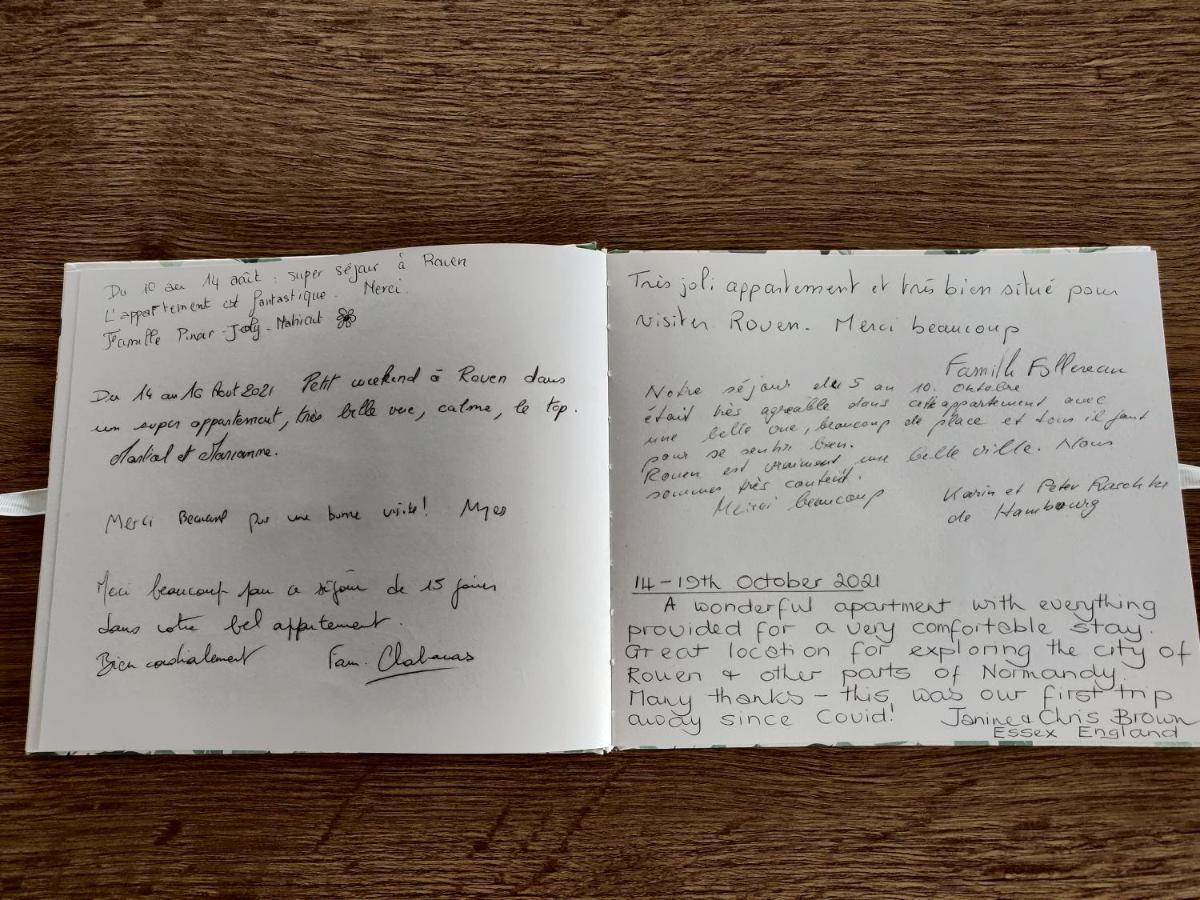 Du 10 au 14 août : super séjour à Rouen
L'appartement est fantastique. Merci.
Famille Pinar-Joly-Mahieut
Du 14 au 16 Aout 2021 Petit weekend à Rouen dans
un super appartement, très belle vue, calme, le top.
Martial et Marianne.
Merci Beaucoup pour une bonne visite!
Merci beaucoup pour ce séjour de 15 jours
dans votre bel appartement.
Bien cordialement Fam. Chabanas
Très joli appartement et très bien situé pour
visiter Rouen. Merci beaucoup
Famille Follereau
Notre séjour de 5 au 10. Octobre
était très agreable dans cette appartement avec
une belle vue, beaucoup de place et tous il faut
pour se sentir bien.
Rouen est vraiment une belle ville. Nous
sommes très content.
Merci beaucoup Karin et Peter Raschke
de Hambourg
14-19th October 2021
A wonderful apartment with everything
provided for a very comfortable stay.
Great location for exploring the city of
Rouen & other parts of Normandy.
Many thanks - this was our first trip
away since Covid! Janine & Chris Brown
Essex England